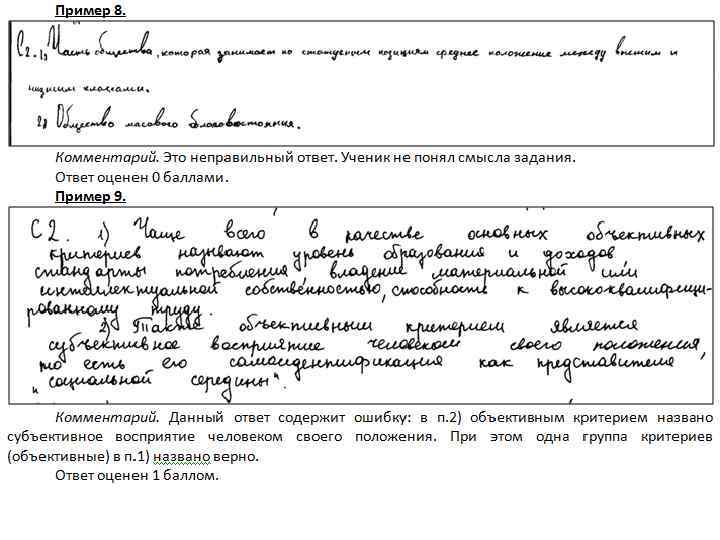 Пример 8.
С2. 1) Часть общества, которая занимает по статусным позициям среднее положение между высшим и
низшим классами.
2) Общество масового благосостояния.
Пример 9.
С2. 1) Чаще всего в качестве основных объективных
критериев называют уровень образования и доходов,
стандарты потребления, владение материальной или
интеллектуальной собственностью, способность к высококвалифици-
рованному труду.
2) Также объективным критерием является
субъективное восприятие человеком своего положения,
то есть его самоидентификация как представителя
"социальной середины".
Комментарий. Это неправильный ответ. Ученик не понял смысла задания.
Ответ оценен 0 баллами.
Комментарий. Данный ответ содержит ошибку: в п.2) объективным критерием названо
субъективное восприятие человеком своего положения. При этом одна группа критериев
(объективные) в п.1) названо верно.
Ответ оценен 1 баллом.